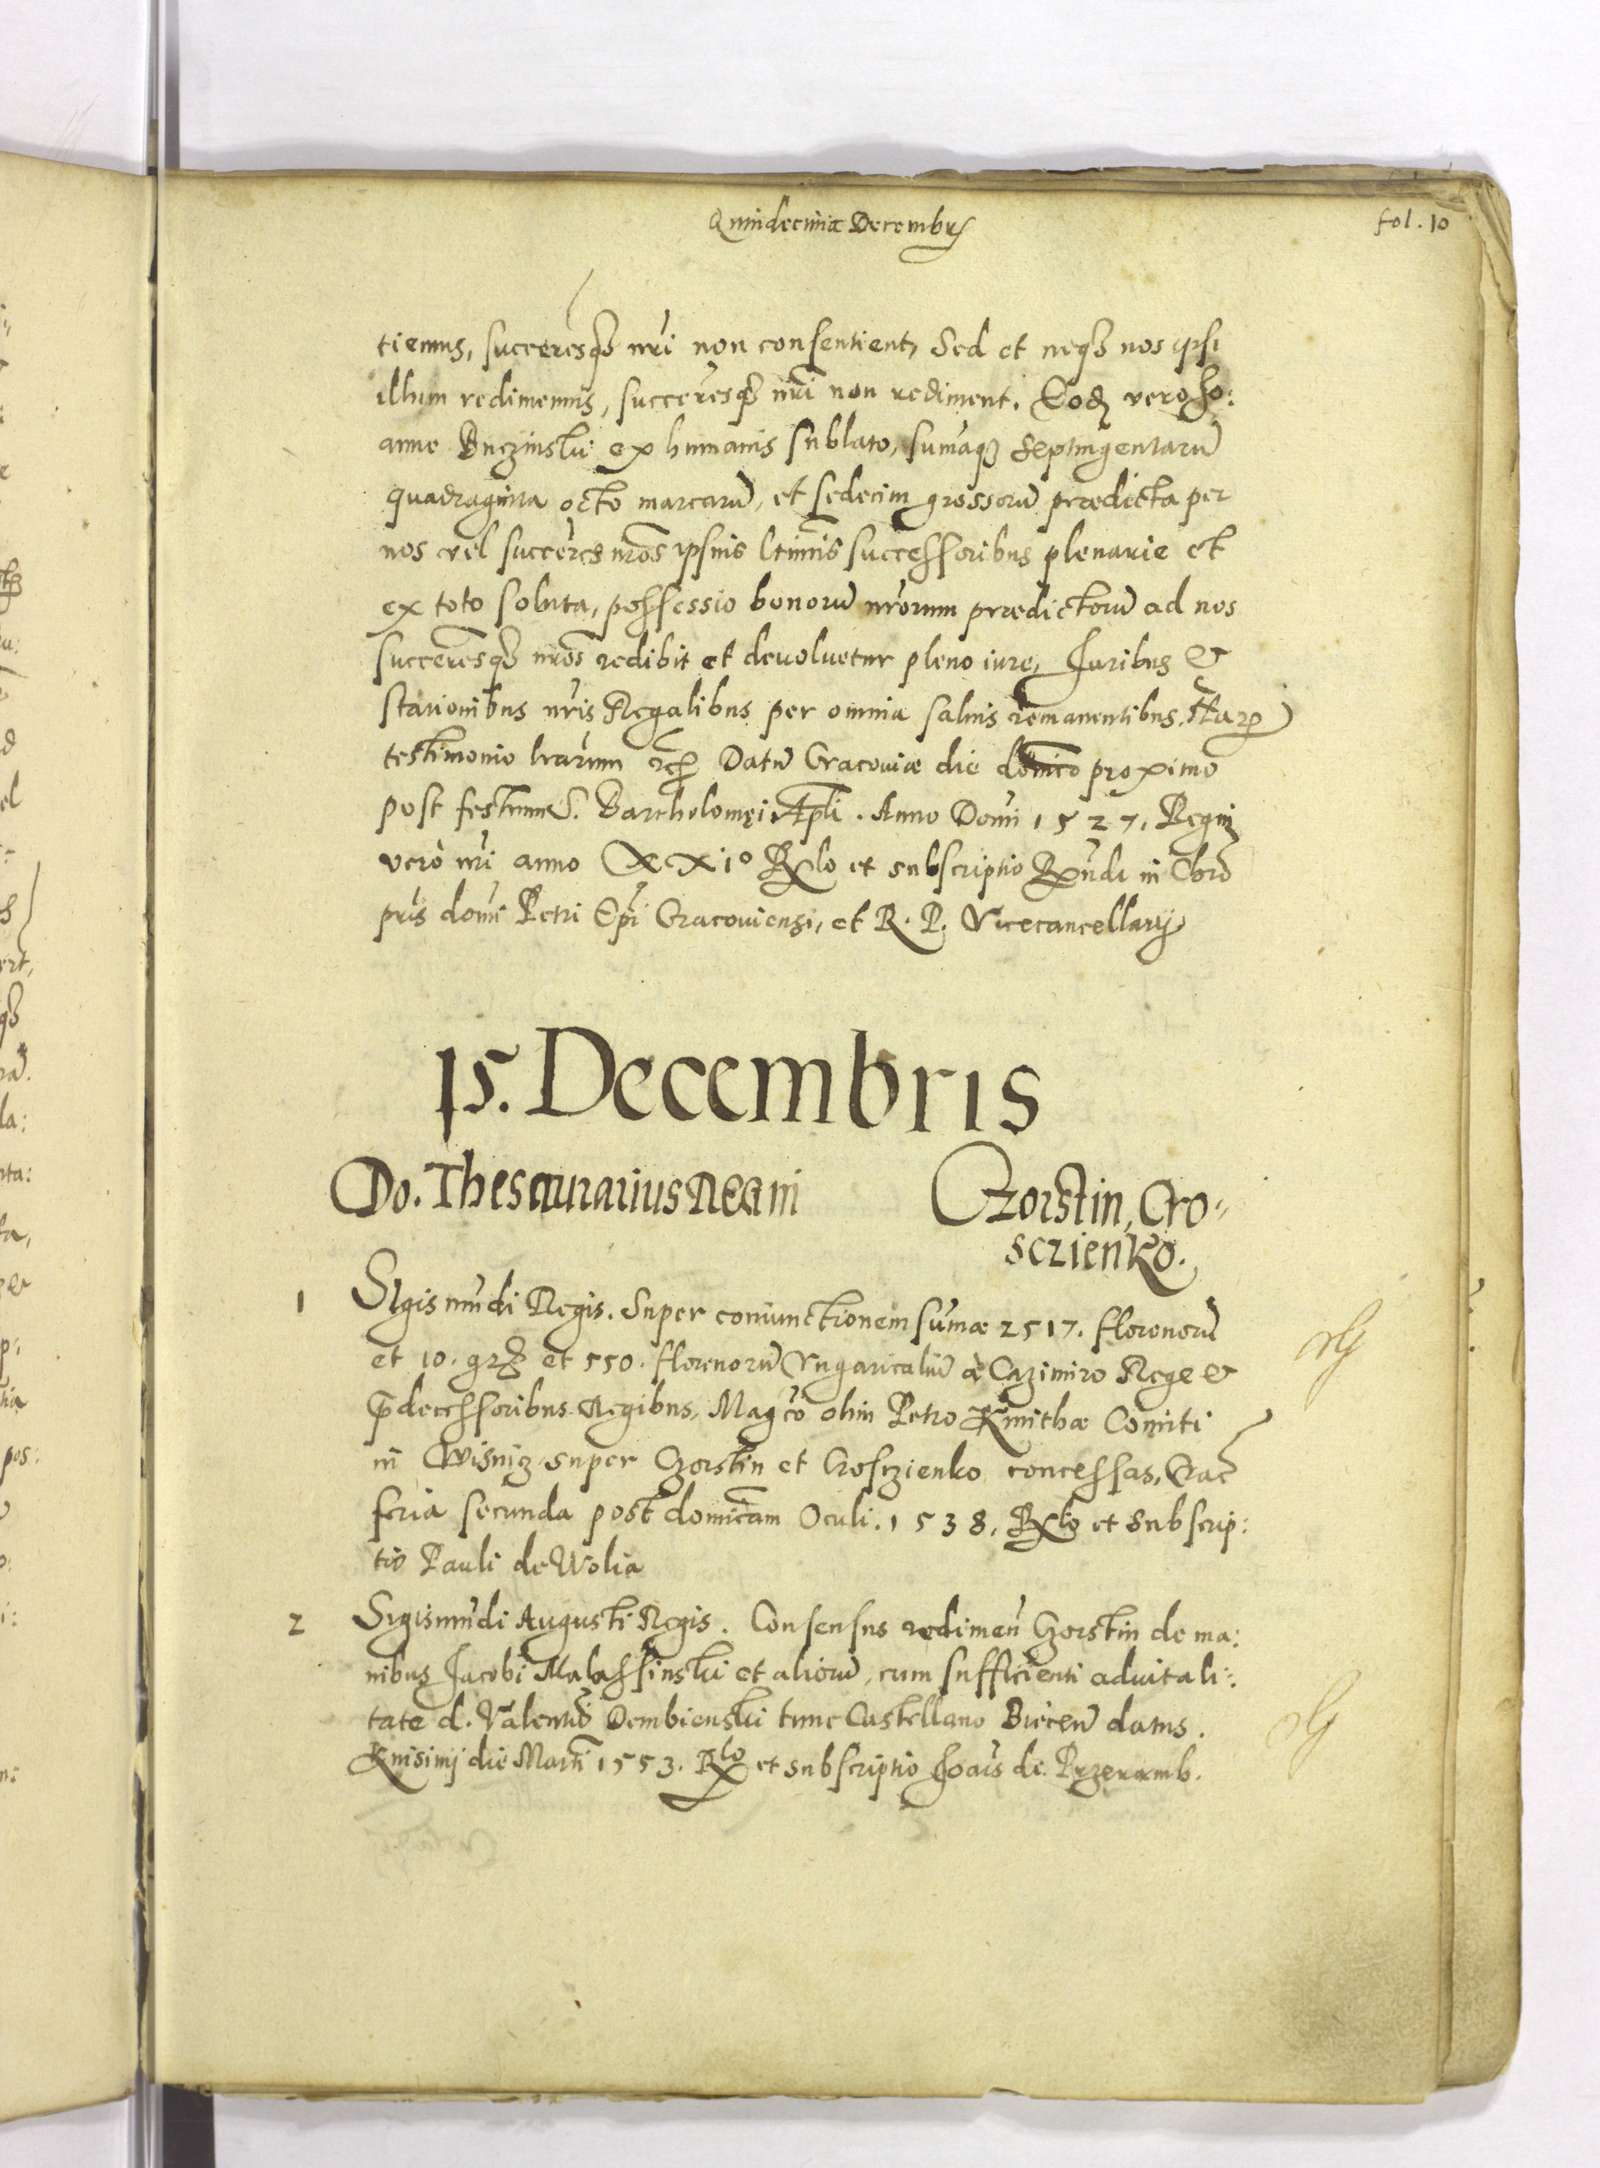 Quindecima Decembris
fol. 10
tiemus, succeresq3 nri non consentient, Sed et neq3 nos ipsi
illum redimemus, succeresq3 nri non rediment. Eod vero Jo:
anne Buczinski ex humanis sublato, sumaq3 septingentarū
quadraginta octo marcarū, et sedecim grossorū prædicta per
nos vel succeres nros ipsius ltimis successoribus plenarie et
ex toto soluta, possessio bonorū nrorum prædictorū ad nos
succeresq3 nros redibit et devoluetur pleno iure, Juribus &
stationibus nris Regalibus per omnia saluis remanentibus. Harȝ
testimonio lrarum Datū Cracoviæ die dominico proximo
post festum S. Bartholomęi Apli. Anno Domi 1527, Regni
vero nri anno XXI° Rlo et subscriptio Rndi in Chro
pris domi Petri Epi Cracoviensi, et R. P. Vicecancellarij
15. Decembris
Do. Thesaurarius Regni
Czorstin, Cro-
sczienko.
1 Sigismūdi Regis. Super coniunctionem sumæ 2517. florenorū
et 10. grȝ et 550. florenorū Vngaricaliū à Cazimiro Rege &
p̄decessoribus Regibus, Magco olim Petro Kmithæ Comiti
in Wisnicz super Czorstin et Crosczienko concessas, Crac
feria secunda post dominicam Oculi. 1538, Rlo et subscrip:
tio Pauli de Wolia
2 Sigismūdi Augusti Regis. Consensus redimen Czorstin de ma:
nibus Jacobi Malassinski et aliorū, cum sufficienti aduitali:
tate d. Valentino Dembienski tunc Castellano Biecen datus.
Knisinij die Marti 1553. Rlo et subscriptio Joais de Przeramb.